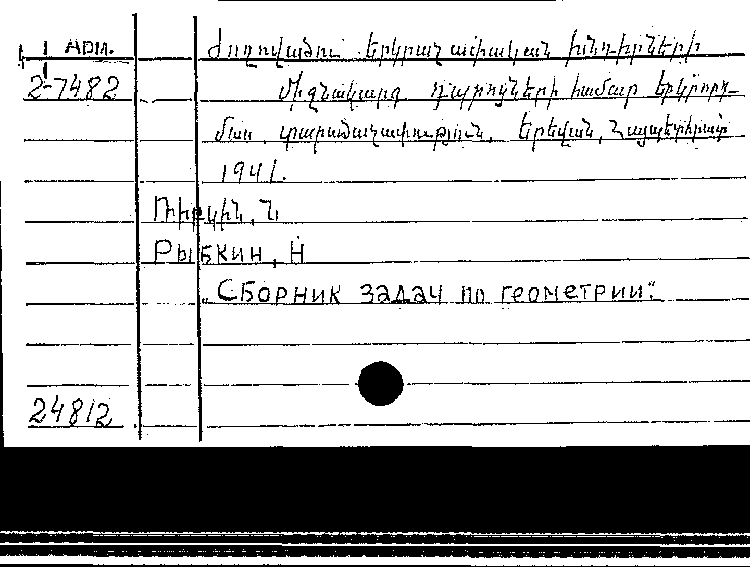 Арм. Ժողովածու երկրաչափական խնդիրների
2-7482 միջնակարգ դպրոցների համար երկրորդ
մաս. տարածաչափություն. Երեվան, Հայպետհրատ
1941.
Ռիբկին, Ն
Рыбкин, Н
„Сборник задач по геометрии".
24812